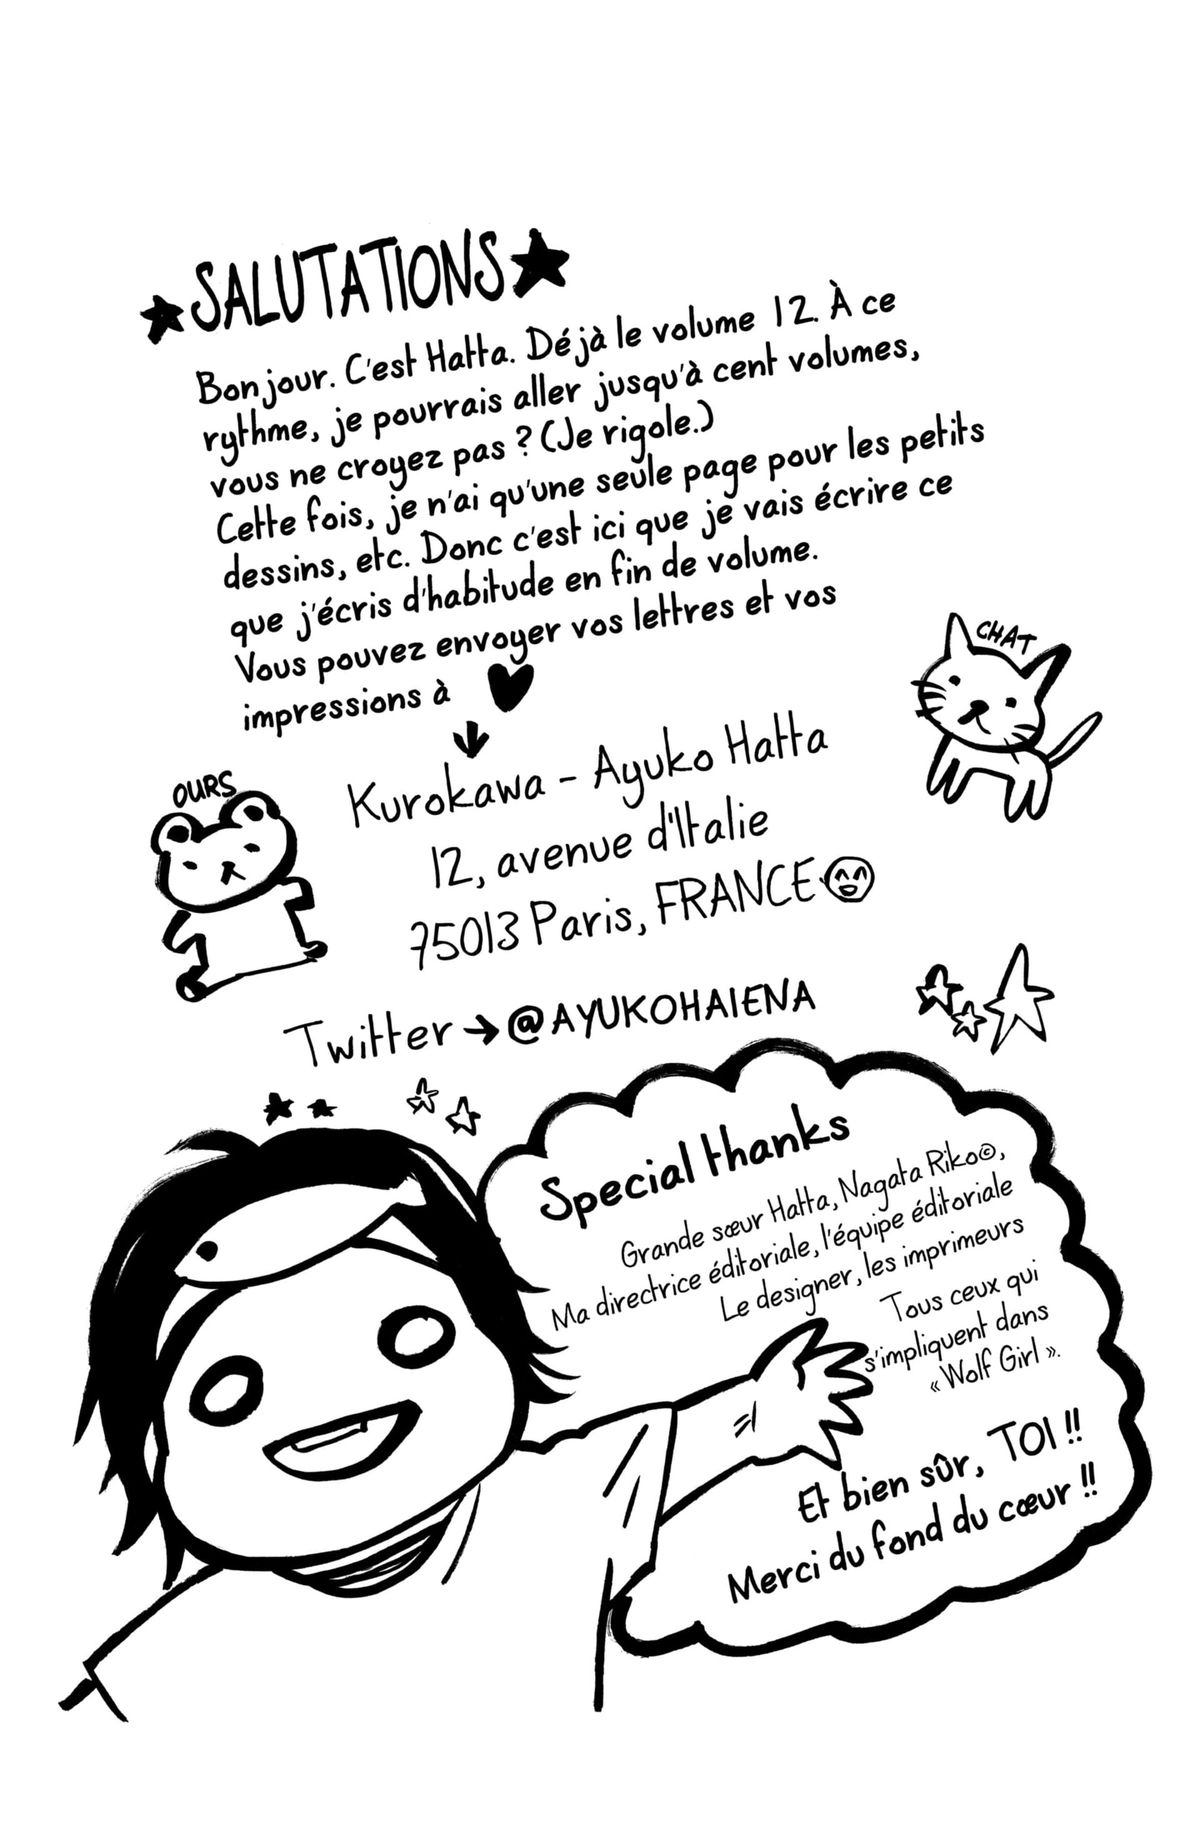 SALUTATIONS
Bonjour. C'est Hatta. Déjà le volume 12. À ce
rythme, je pourrais aller jusqu'à cent volumes,
vous ne croyez pas ? (Je rigole.)
Cette fois, je n'ai qu'une seule page pour les petits
dessins, etc. Donc c'est ici que je vais écrire ce
que j'écris d'habitude en fin de volume.
Vous pouvez envoyer vos lettres et vos
impressions à
CHAT
OURS
Kurokawa - Ayuko Hatta
12, avenue d'Italie
75013 Paris, FRANCE
Twitter → @AYUKOHAIENA
Special thanks
Grande sœur Hatta, Nagata Riko©,
Ma directrice éditoriale, l'équipe éditoriale
Le designer, les imprimeurs
Tous ceux qui
s'impliquent dans
« Wolf Girl ».
Et bien sûr, TOI !!
Merci du fond du cœur !!